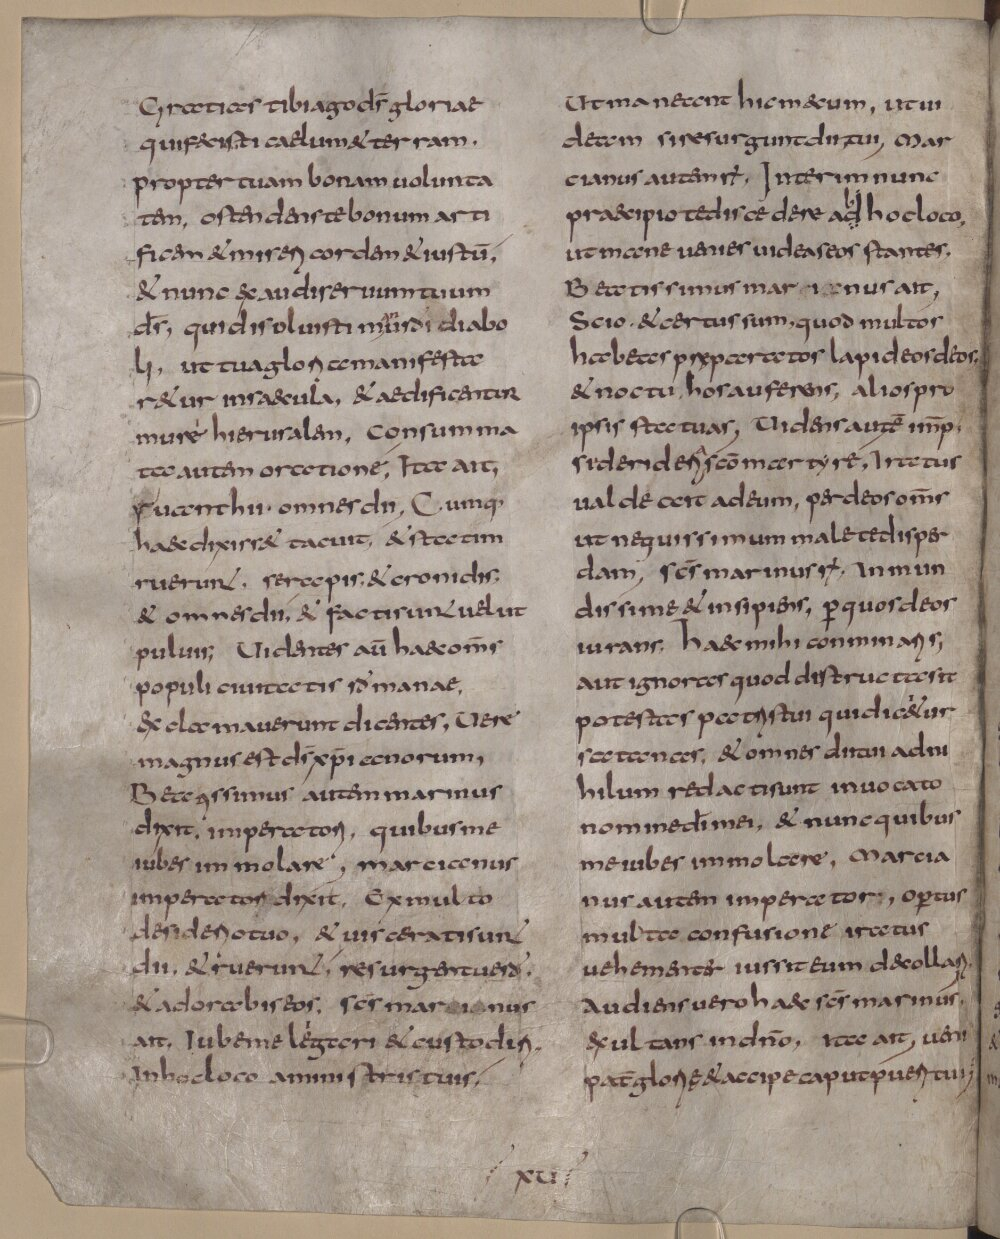 Gratias tibi ago ds̄ gloriae
qui fecisti caelum & terram.
propter tuam bonam uolunta
tem, ostendens te bonum arti
ficem & misericordem & iustū,
& nunc exaudi seruum tuum
ds̄, qui disoluisti mysdi diabo
li, ut tua gloria manifesta
r&ur insaecula, & aedificentur
mure hierusalem, Consumma
ta autem oratione, Ita ait,
omnes dii, Cumq;
haec dixiss& tacuit, & statim
ruerunt. serapis. & cronidis.
& omnes dii, & facti sunt uelut
puluis; Uidentes aū haec om̄s
populi ciuitatis romanae,
exclamauerunt dicentes, Uere
magnus est ds̄ xp̄ianorum,
Beatissimus autem marinus
dixit, imperator, quibus me
iubes immolare, marcianus
imperator dixit. Ex multo
desiderio tuo, & uiscerati sunt
dii. & ruerunt, resurgent uero.
& adorabis eos. scs̄ marinus
ait. Iubeme legari & custodiri.
Inhoc loco aministris tuis.
Ut maneant hic mecum, ut ui
deam si resurgunt dii tui, Mar
cianus autem r̄. Interim nunc
praecipio te discedere ab hoc loco,
ut mane uenies uideas eos stantes.
Beatissimus marinus ait,
Scio. & certus sum, quod multos
habetes praeparatos lapideos deos,
& noctu hos auferens, alios pro
ipsis statuas, Uidens autē imp̄.
siderideri scōm martyrē, Iratus
ualde ait adeum, per deos om̄s
ut nequissimum male te disper
dam, scs̄ marinus r̄. Inmun
dissime & insipiens, p quos deos
iurans. haec mihi conminaris,
aut ignoras quod distructa sit
potestas patris tui qui dic&ur
satanas, & omnes dii tui adni
hilum redacti sunt inuocato
nomine dī mei, & nunc quibus
me iubes immolare, Marcia
nus autem imperator, optus
multa confusione iratus
uehementer iussit eum decollari.
Audiens uero haec scs̄ marinus,
exultans in dn̄o, ita ait, ueni
pat̄ gloriae & accipe caput pueri tui
xvi